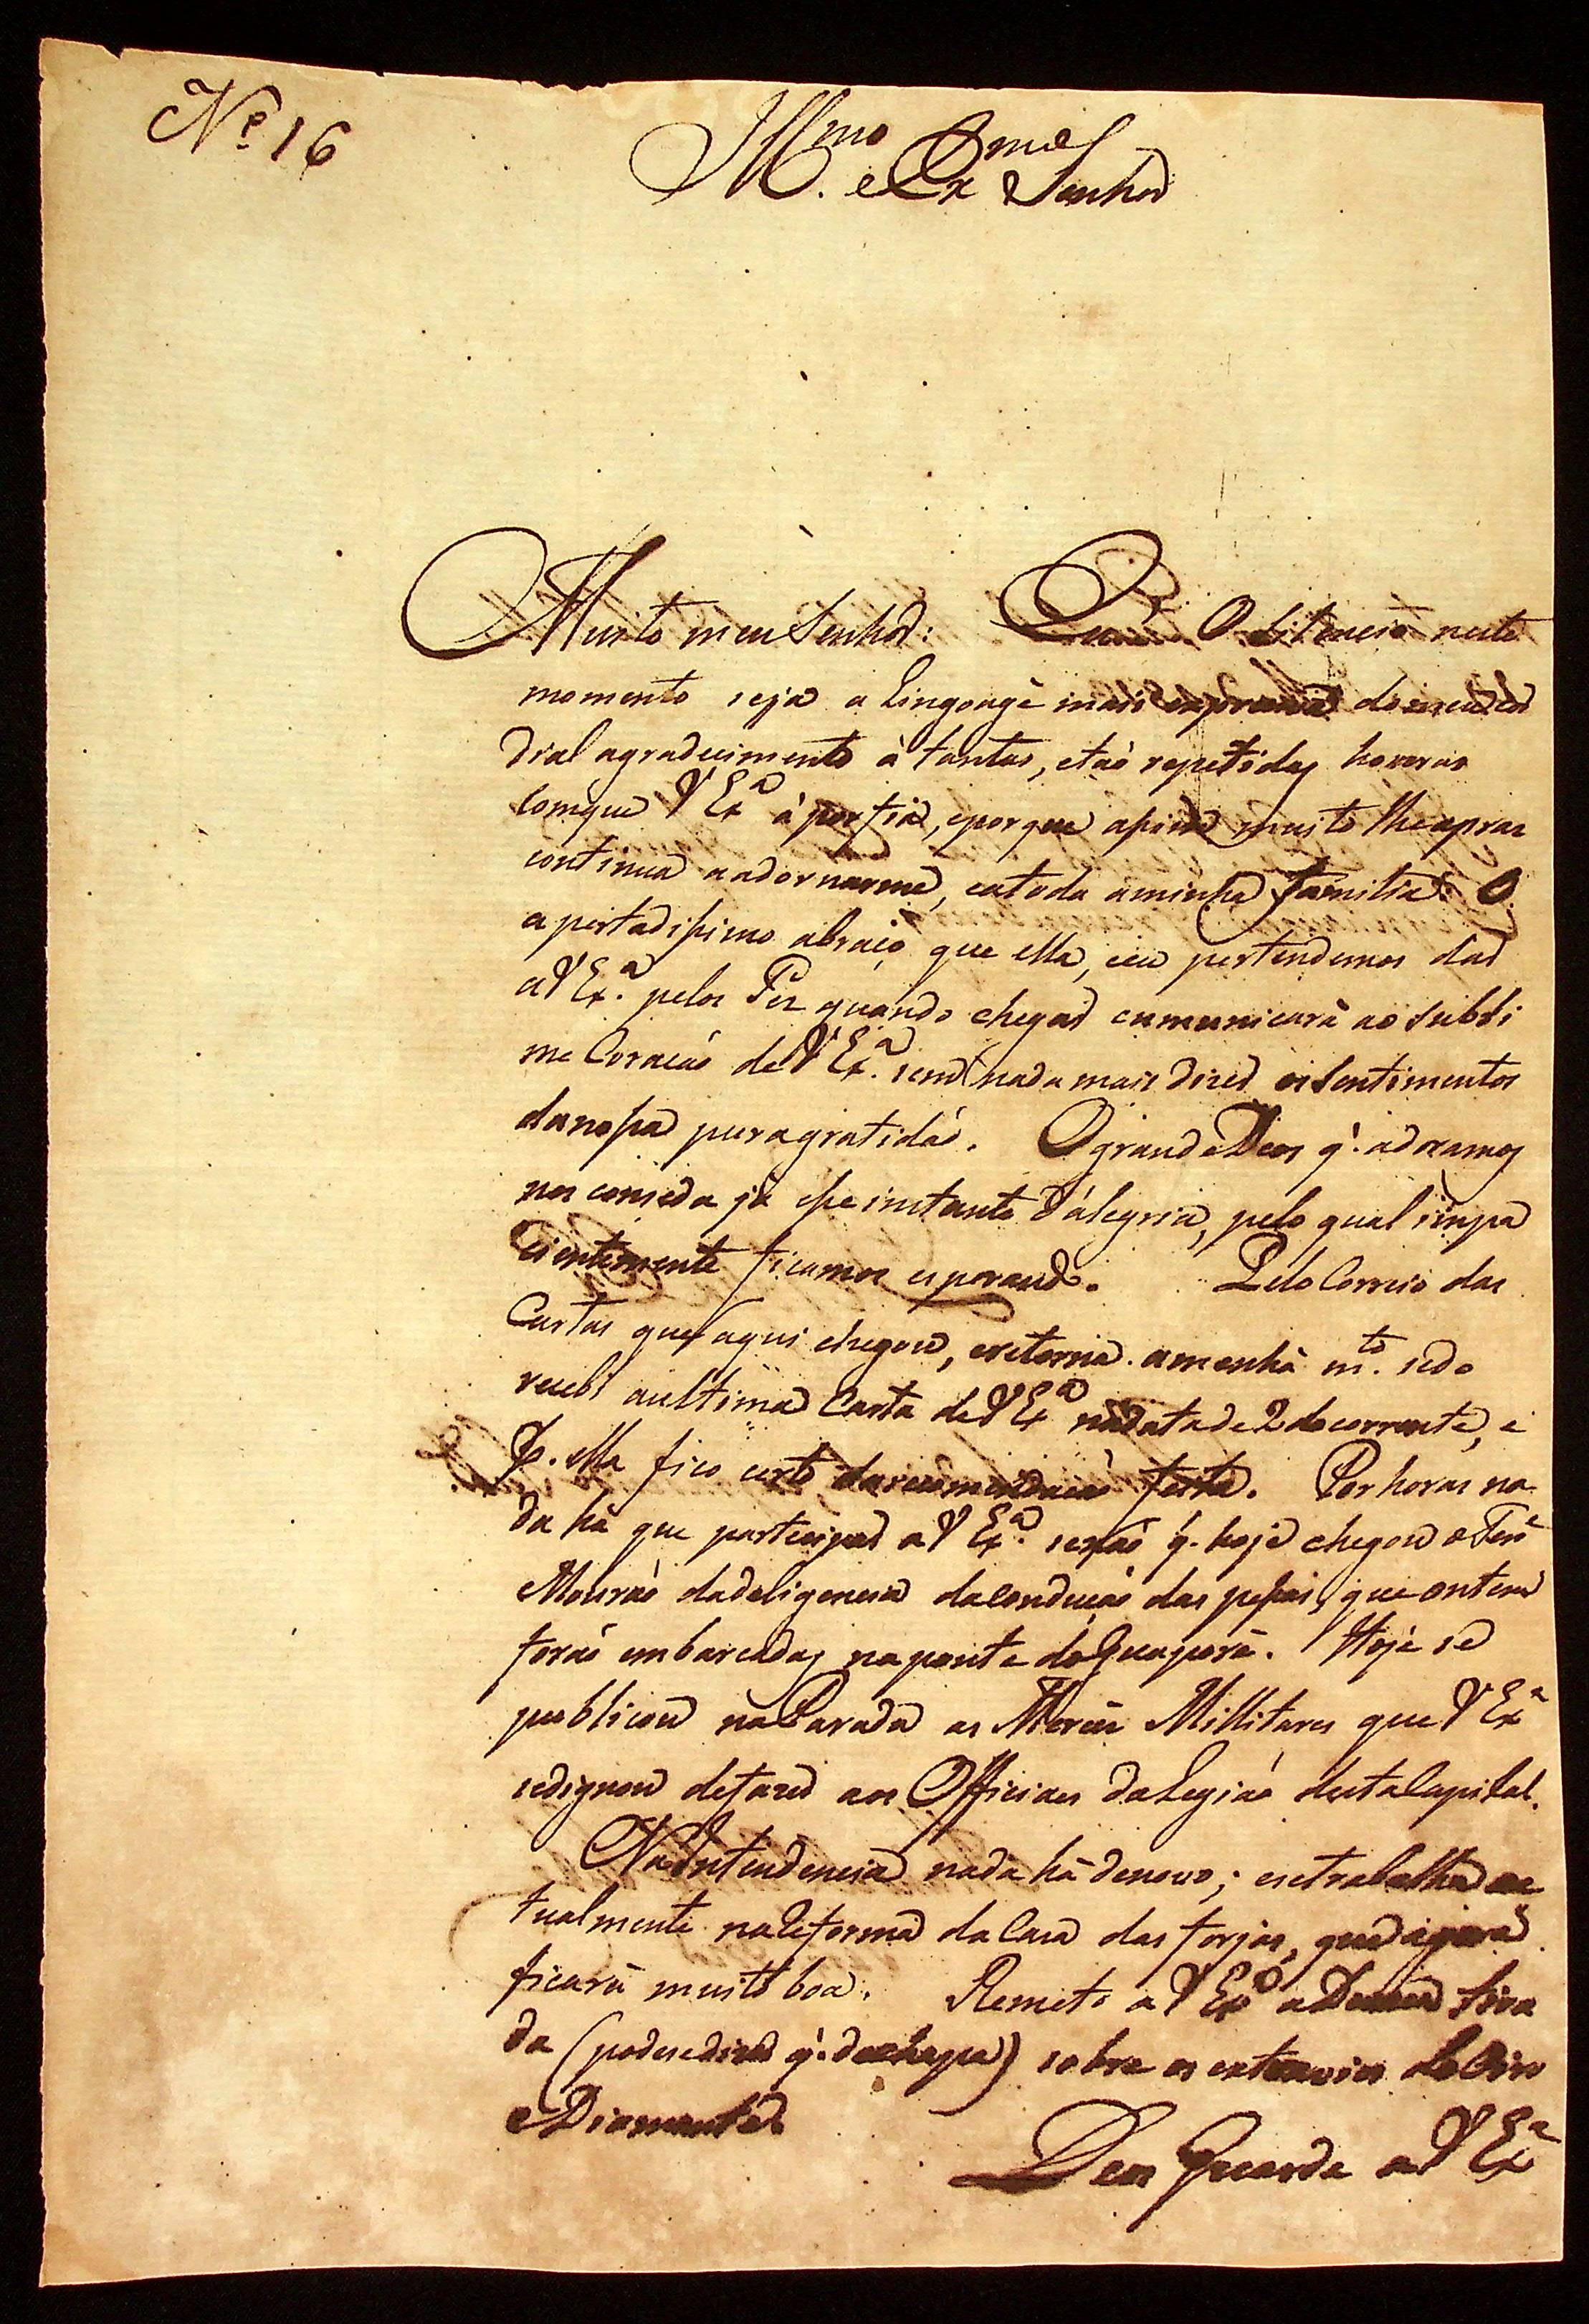 Nº 16
Illmo. e Exmo Senhor
Muito meu Senhor: O Silencio neste
momento seja a Lingoage mais expressiva do meu Cor
dial agradecimento à tantas, e tão repetidas honras
Com que V Exa à porfia, e porque assim muito lhe apraz
continua a adornarme, e a toda a minha familia. O
apertadissimo abraço que ella, e eu pertendemos dar
a V Exa. pelos Pez quando chegar comunicarà ao Subli
me Coração de V Exa. sem nada mais dizer os Sentimentos
da nossa pura gratidão. O grande Deos q. adoramos
nos conseda já esse instante d'alegria, pelo qual impa
cientemente ficamos esperando. Pelo Correio das
Cartas que aqui chegou, e retorna amenhã mto. sedo
recebi a ultima Carta de V Exa na data de 2 do corrente, e
P. ella fico certo da recomendação feita. Por horas na
da hà que participar a V Exa. senão q. hoje chegou o Ten
Mourão da deligencia da condução das pessas, que ontem
forão embarcadas na ponte do Guaporé. Hoje se
publicou na Parada as Merces Millitares que V Exa
se dignou de fazer aos Officiaes da Legião desta Capital.
Na Intendencia nada hà de novo; e se trabalha ac
tualmente na Reforma da Casa das forjas, que agora
ficarà muito boa. Remeto a V Exa a Devaça tira
da (podese dizer q. de chapa) sobre os extravios de Oiro
e Diamantes.
Deos Guarde a V Exa